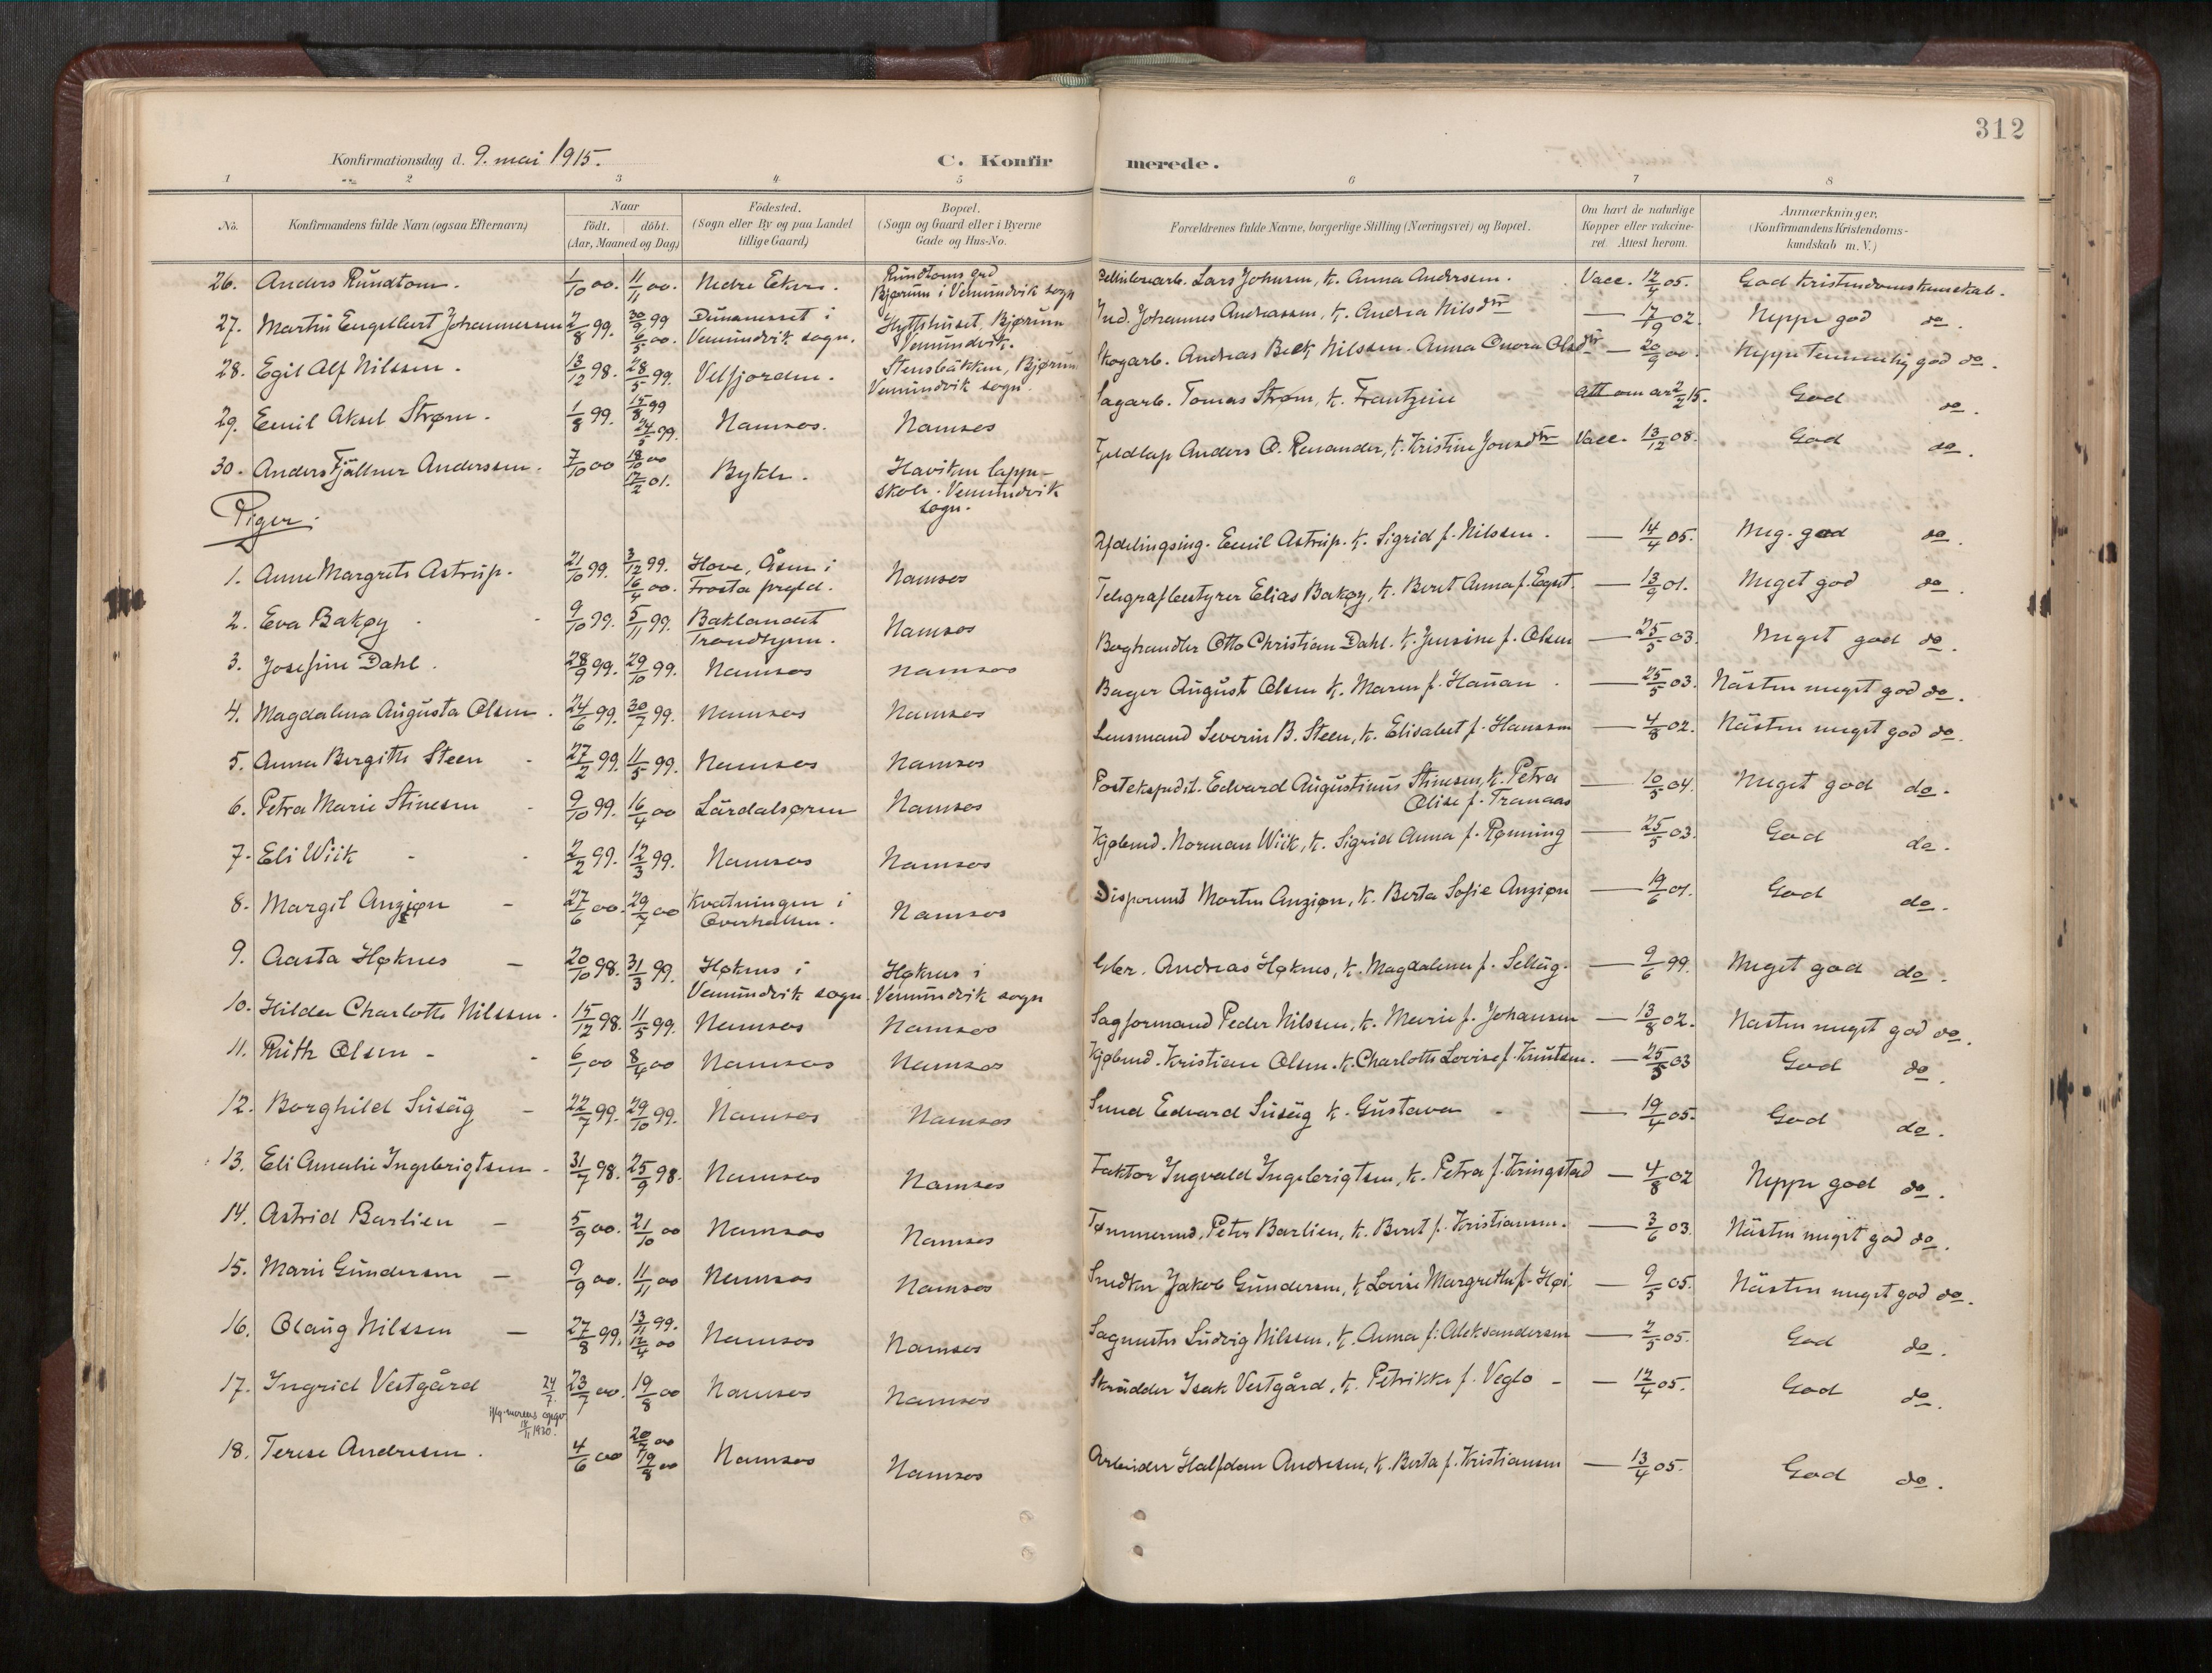 312
Konfirmationsdag d. 9. mai 1915.
C. Konfirmerede.
1 2 3 4 5 6 7 8
No. Konfirmandens fulde Navn (ogsaa Efternavn) Naar født. døbt. (Aar, Maaned og Dag) Fødested. (Sogn eller By og paa Landet tillige Gaard) Bopæl. (Sogn og Gaard eller i Byerne Gade og Hus-No. Forældrenes fulde Navne, borgerlige Stilling (Næringsvei) og Bopæl. Om havt de naturlige Kopper eller vakcineret. Attest herom. Anmærkninger, (Konfirmandens Kristendomskundskab m. V.)
26. Anders Rundtom. 1/10 00. 11/11 00. Nedre Eker. Rundtoms grd Bjørum i Vemundvik sogn Lars Johnsen, k. Anna Andersen. Vacc. 12/4 05. God Kristendomskunskab.
27. Martin Engelbert Johannessen 2/8 99. 30/9 99 6/5 00. Dunanesset i Vemundvik sogn. Hyttehuset, Bjørum Vemundvik. Ind. Johannes Andreassen, k. Andrea Nilsdtr — 17/9 02. Neppe god do.
28. Egil Alf Nilssen. 13/12 98. 28/5 99. Velfjorden. Stensbäkken, Bjørum Vemundvik sogn. Skogarb. Andreas Beck Nilssen. Anna Olsdtr — 20/9 00. Neppe temmelig god do.
29. Emil Aksel Strøm. 1/8 99. 15/8 99 24/9 99. Namsos. Namsos Sagarb. Tomas Strøm, k. Frantzine Att om ar 2/2 15. God do.
30. Anders Fjällner Anderssen. 7/10 00 18/10 00 17/2 01. Bykle. Haviken lappeskole. Vemundvik sogn. Fjeldlap Anders O. Renander, k. Kristine Jonsdtr Vacc. 13/12 08. God do.
Piger.
1. Anne Margrete Astrup. 21/10 99. 3/12 99. 16/4 00. Hove, Åsen i Frosta prgld. Namsos Afdelingsing. Emil Astrup. k. Sigrid f. Nilssen. — 14/4 05. Meg. god do.
2. Eva Bakøy 9/10 99. 5/11 99. Baklandet Trondhjem. Namsos Telegrafbestyrer Elias Bakøy, k. Beret Anna f. — 13/9 01. Meget god do.
3. Josefine Dahl. 28/9 99. 29/10 99. Namsos Namsos Boghandler Otto Christian Dahl. k. Jensine f. Olsen — 25/5 03. Meget god do.
4. Magdalena Augusta Olsen. 24/6 99. 30/7 99. Namsos Namsos Bager August Olsen k. Maren f. Hauan. — 25/5 03. Nästen meget god do.
5. Anna Bergitte Steen 27/2 99. 11/5 99. Namsos Namsos Lensmand Severin B. Steen, k. Elisabet f. Hanssen — 4/8 02. Nästen meget god do.
6. Petra Marie Stinesen 9/10 99. 16/4 00 Lärdalsøren Namsos Postekspedit. Edvard Augustinus Stinesen, k. Petra Olise f. Tranaas — 10/5 04. Meget god do.
7. Eli Wiik 2/2 99. 12/3 99. Namsos Namsos Kjøbmd. Norman Wiik, k. Sigrid Anna f. Rønning — 25/5 03. God do.
8. Margit Anziøn 27/6 00. 29/7 00 Kvatningen i Overhallen. Namsos Disponent Morten Anziøn, k. Berta Sofie Anziøn — 19/6 01. God do.
9. Aasta Høknes — 20/10 98. 31/3 99. Høknes i Vemundvik sogn. Høknes i Vemundvik sogn Andreas Høknes, k. Magdalena f. Selläg. — 9/6 99. Meget god do.
10. Hilda Charlotte Nilssen. 15/12 98. 11/5 99. Namsos Namsos Sagformand Peder Nilssen, k. Marie f. Johansen — 13/8 02. Nasten meget god do.
11. Ruth Olsen 6/1 00 8/4 00 Namsos Namsos Kjøbmd. Kristian Olsen. k. Charlotte Lovise f. Knutsen. — 25/5 03 God do.
12. Borghild Susäg 22/7 99. 29/10 99. Namsos Namsos Smed Edvard Susäg k. Gustava — 19/4 05. God do.
13. Eli Amalie Ingebrigtsen 31/7 98. 25/9 98. Namsos Namsos Faktor Ingvald Ingebrigtsen, k. Petra f. Kringstad — 4/8 02 Neppe god do.
14. Astrid Barlien — 5/9 00. 21/10 00 Namsos Namsos Tømmermd. Peter Barlien, k. Beret f. Kristiansen. — 3/6 03. Nästen meget god do.
15. Marie Gundersen — 9/9 00. 11/11 00 Namsos Namsos Snedker Jakob Gundersen, k. Lovise Margrethe f. Høi — 9/5 05. Nästen meget god do.
16. Olaug Nilssen — 27/8 99. 13/11 99. 12/4 00 Namsos Namsos Sagmester Ludvig Nilssen, k. Anna f. Aleksandersen — 2/5 05. God do.
17. Ingrid Vestgård 24/7 23/7 00. 19/8 00 Namsos Namsos Skrädder Isak Vestgård, k. Petrikke f. Veglo — 12/4 05. God do.
iflg. morens opgav 1930.
18. Terese Andresen. 4/6 00 20/7 00 19/8 00 Namsos Namsos Arbeider Halfdan Andresen, k. Berta f. Kristiansen — 13/4 05. God do.